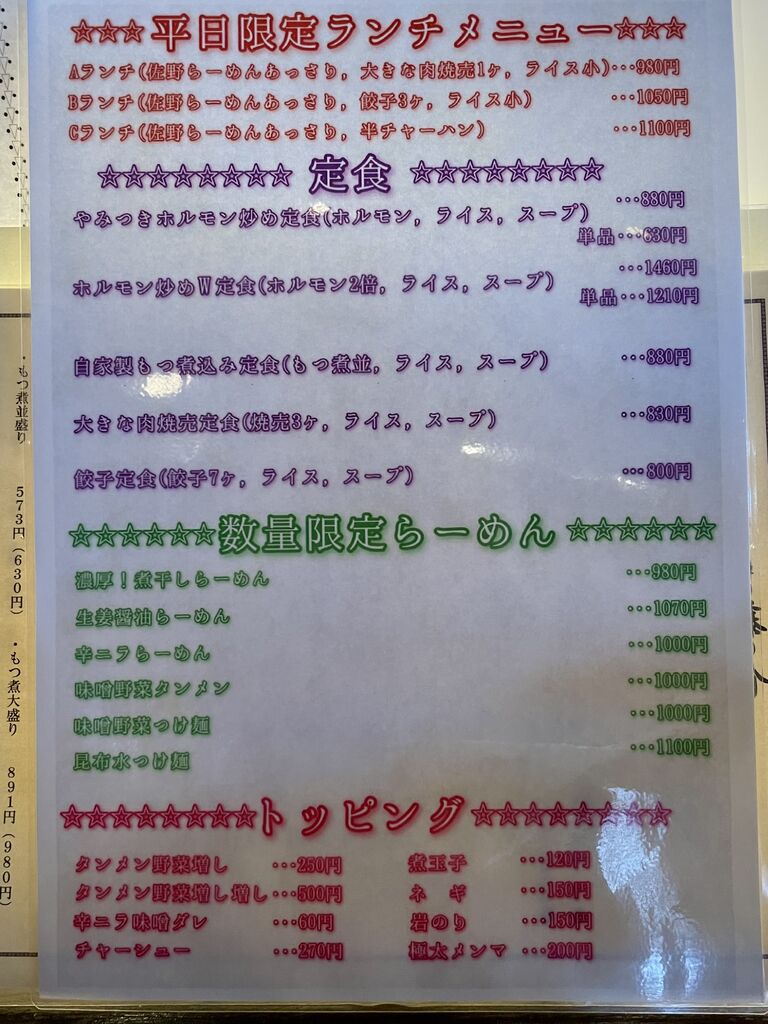 ☆☆☆平日限定ランチメニュー☆☆☆
Aランチ(佐野らーめんあっさり, 大きな肉焼売1ヶ, ライス小)…980円
Bランチ(佐野らーめんあっさり, 餃子3ヶ, ライス小) …1050円
Cランチ(佐野らーめんあっさり, 半チャーハン) …1100円
☆☆☆☆☆☆☆☆ 定食 ☆☆☆☆☆☆☆☆
やみつきホルモン炒め定食(ホルモン, ライス, スープ) …880円
単品…630円
ホルモン炒めW定食(ホルモン2倍, ライス, スープ) …1460円
単品…1210円
自家製もつ煮込み定食(もつ煮並, ライス, スープ) …880円
大きな肉焼売定食(焼売3ヶ, ライス, スープ) …830円
餃子定食(餃子7ヶ, ライス, スープ) …800円
☆☆☆☆☆☆数量限定らーめん☆☆☆☆☆☆
濃厚！煮干しらーめん …980円
生姜醤油らーめん …1070円
辛ニラらーめん …1000円
味噌野菜タンメン …1000円
味噌野菜つけ麺 …1000円
昆布水つけ麺 …1100円
☆☆☆☆☆☆☆☆トッピング☆☆☆☆☆☆☆☆
タンメン野菜増し …250円
タンメン野菜増し増し…500円
辛ニラ味噌ダレ …60円
チャーシュー …270円
煮玉子 …120円
ネギ …150円
岩のり …150円
極太メンマ …200円
・もつ煮並盛り 573円(630円)
・もつ煮大盛り 891円(980円)